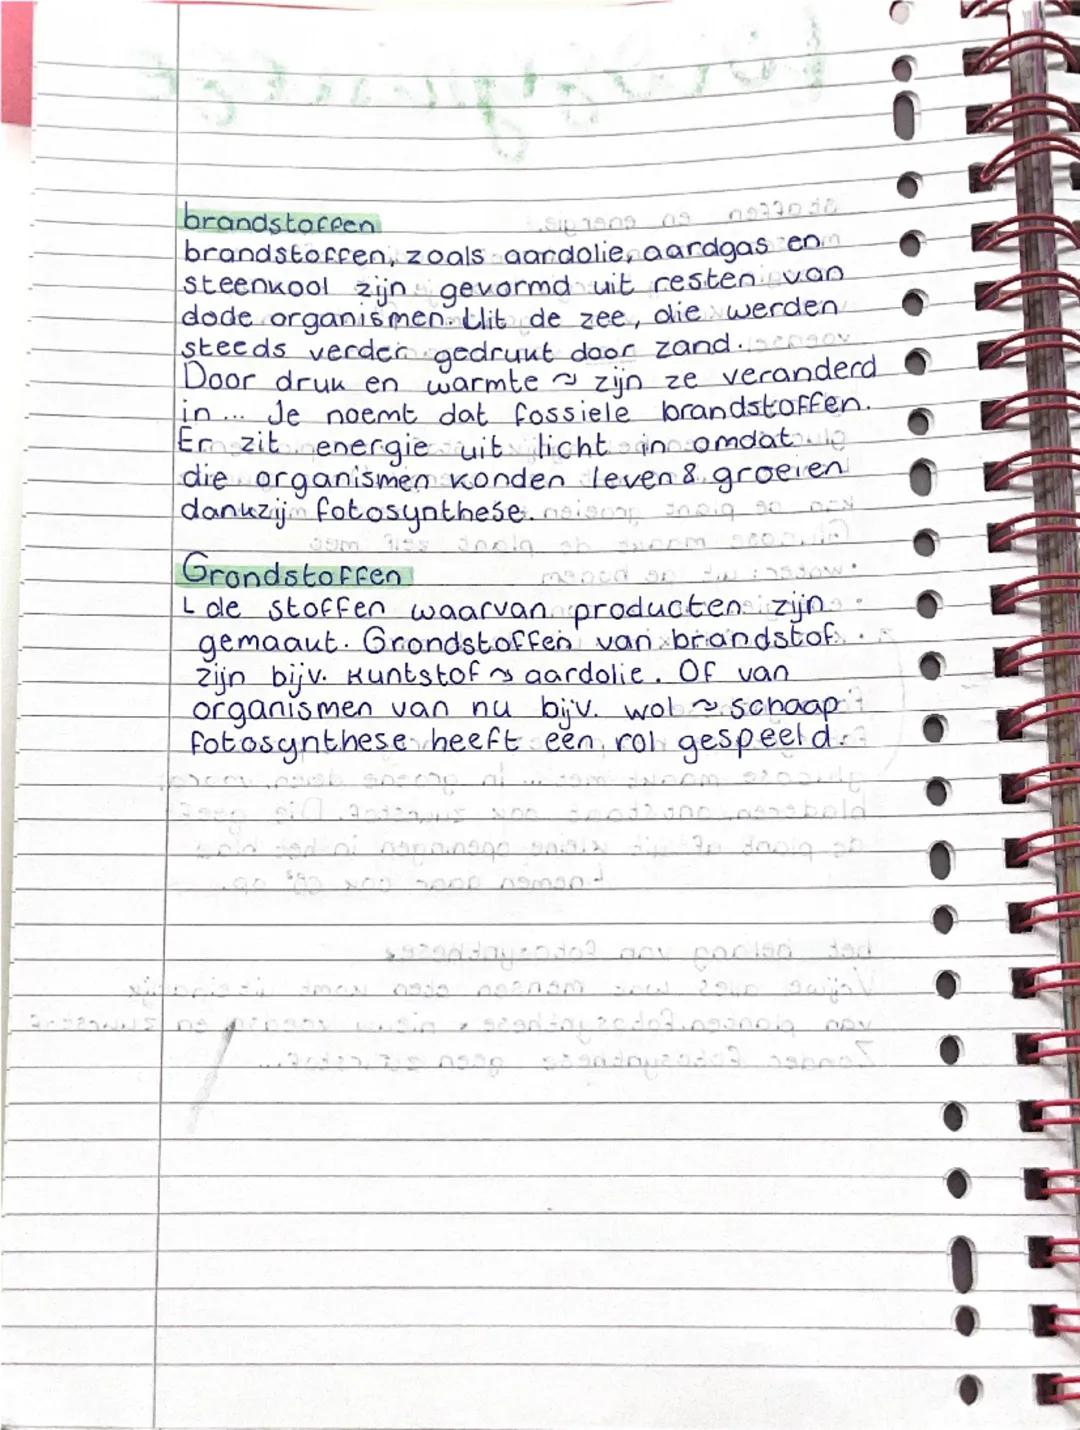 brandstoffen
brandstoffen, zoals aardolie, aardgas en
steenkool zijn gevormd uit resten van
dode organismen. Uit de zee, die werden
steeds verder gedrukt door zand.
Door druk en warmte ~> zijn ze veranderd
in ... Je noemt dat fossiele brandstoffen.
Er zit energie uit licht in omdat
die organismen konden leven & groeien
dankzij fotosynthese.
Grondstoffen
↳ de stoffen waarvan producten zijn
gemaakt. Grondstoffen van brandstof
zijn bijv. kuntstof ~> aardolie. Of van
organismen van nu bijv. wol ~> schaap
fotosynthese heeft een rol gespeeld.